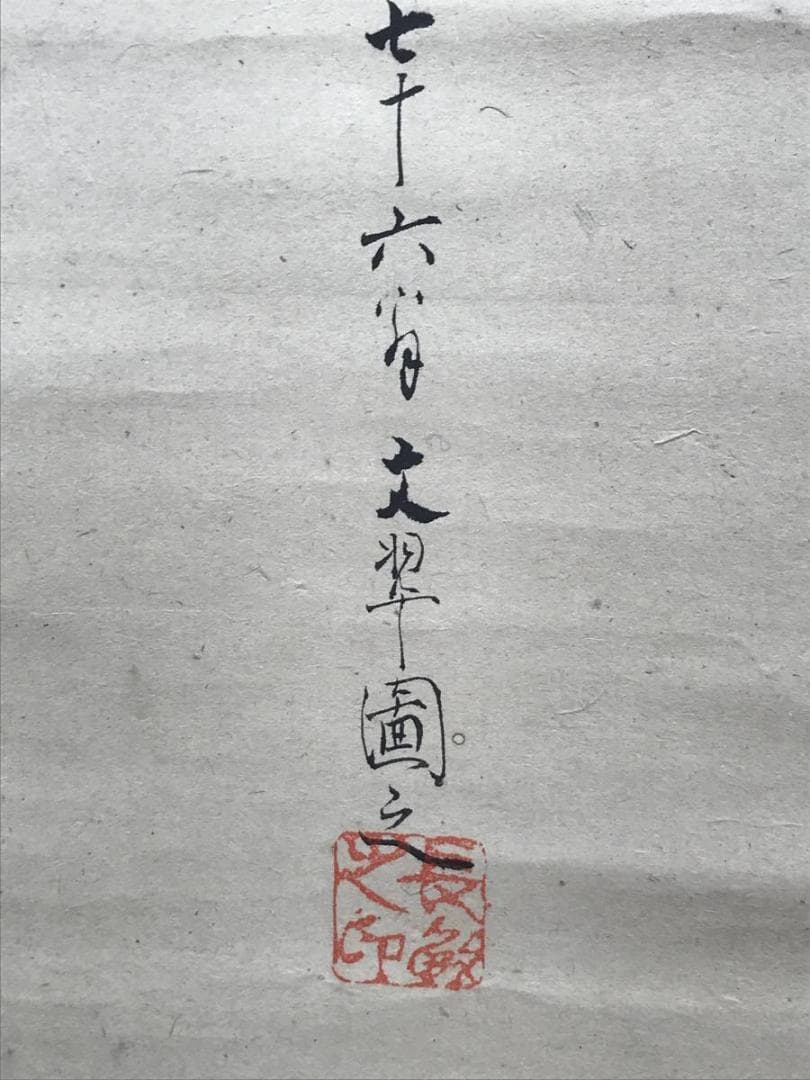 七十六翁文翠圖之
長敏
之印